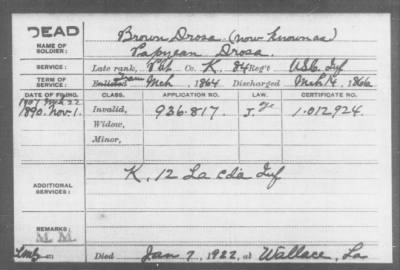 DEAD
NAME OF SOLDIER:
Brown Drosa (now known as)
Papyrean Drosa.
SERVICE:
Late rank, Pvt Co. K, 84 Reg't U.S.C. Inf
TERM OF SERVICE:
Enlisted Mch, 1864 Discharged Mch 14, 1866
DATE OF FILING. CLASS. APPLICATION NO. LAW. CERTIFICATE NO.
1907 Mch 22
1890. Nov. 1. Invalid, 936.817. 1.012,924.
Widow,
Minor,
ADDITIONAL SERVICES:
K, 12 La Inf
REMARKS:
M M
Died Jan 7, 1922, at Wallace, La